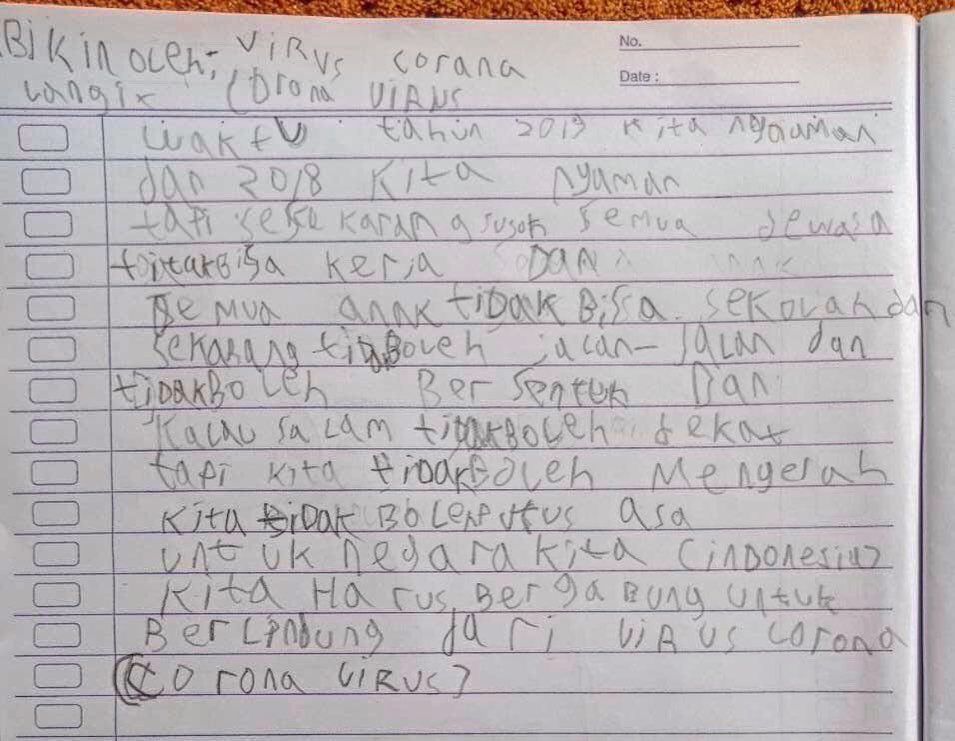 BIKIN OLEH: VIRUS corana
Langix (orona VIRUS
No.
Date :
waktu tahun 2019 kita nyauman
dan 2018 Kita nyaman
tapi sekarang susah semua dewasa
tidakBisa kerja DAN
SeMua anak tiDaK BiSSa. seKolah dan
SeKarang tidaBoleh jalan-Jalan dan
tiDakBoleh BerSentuh Dan
Kalau Salam tidakBoleh dekat
tapi kita tiDakBoleh Mengerah
kita tiDak Bolehputus asa
untuk negara kita (inDonesia)
Kita Harus BergaBung untuk
BerLinDung dari ViRUS corona
(Corona ViRUS)